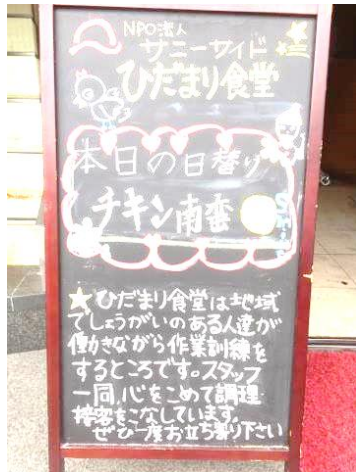 NPO法人
サニーサイド
ひだまり食堂
本日の日替り
チキン南蛮
★ひだまり食堂は地域
でしょうがいのある人達が
働きながら作業訓練を
するところです。スタッフ
一同、心をこめて調理・
接客をこなしています。
ぜひ一度お立ち寄り下さい